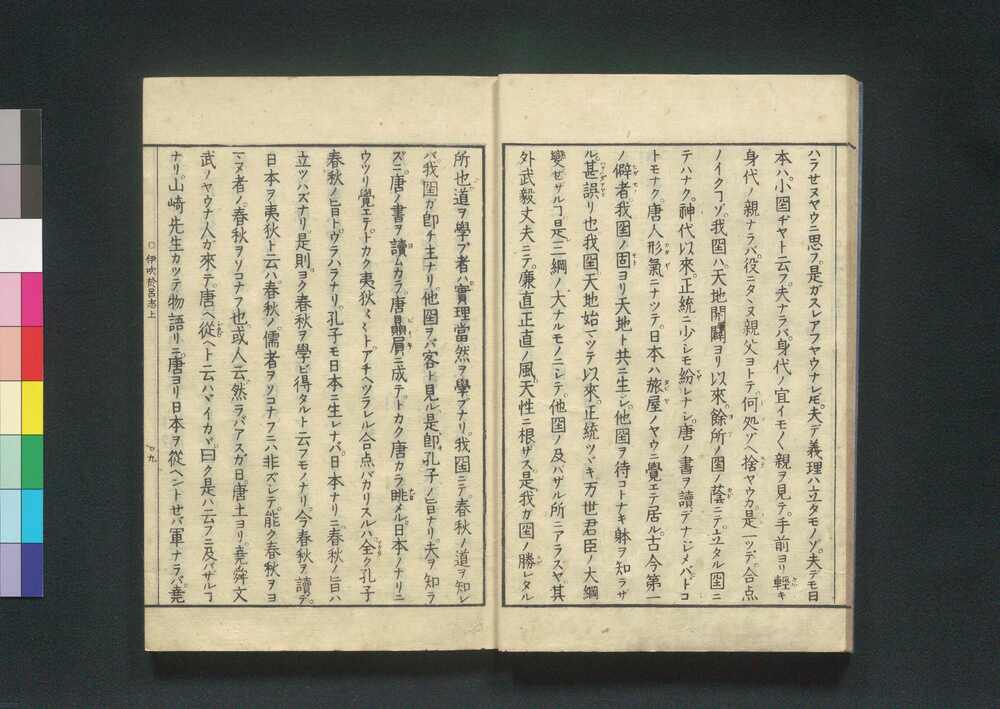 ハラせヌヤウニ思フ是ガスレアフヤウナレ𪜈夫デ義理ハ立タモノゾ夫デモ日
本ハ小國ヂヤト云フ夫ナラバ身代ノ宜イモノヘ親ヲ見テ手前ヨリ輕キ
身代ノ親ナラバ役ニタヽヌ親父ヨトテ何処ゾヘ捨ヤウカ是一ツデ合点
ノイクヿゾ我國ハ天地開闢ヨリ以來餘所ノ國ノ蔭ニテ立タル國ニ
テハナク神代以來正統ニ少シモ紛レナシ唐ノ書ヲ讀デナヅメバトコ
トモナク唐人形氣ニナツテ日本ハ旅屋ノヤウニ覺エテ居ル古今第一
ノ僻者我國ノ固ヨリ天地ト共ニ生シ他國ヲ待コトナキ躰ヲ知ラザ
ル甚誤リ也我國天地始マツテ以來正統ツヾキ万世君臣ノ大綱
變ぜザルヿ是三綱ノ大ナルモノニシテ他國ノ及バザル所ニアラスヤ其
外武毅丈夫ニテ廉直正直ノ風天性ニ根ザス是我ガ國ノ勝レタル
所也道ヲ學ブ者ハ實理當然ヲ學ブナリ我國ニテ春秋ノ道ヲ知レ
バ我國ガ即チ主ナリ他國ヲバ客ト見ル是即孔子ノ旨ナリ夫ヲ知ラ
ズニ唐ノ書ヲ讀ムカラ唐贔屓ニ成テトカク唐カラ眺メル日本ノナリニ
ウツリ覺エテトカク夷狄〱トアチヘツラレル合点バカリスルハ全ク孔子
春秋ノ旨トウラハラナリ孔子モ日本ニ生レナバ日本ナリニ春秋ノ旨ハ
立ツハズナリ是則ヨク春秋ヲ學ビ得タルト云フモノナリ今春秋ヲ讀デ
日本ヲ夷狄ト云ハ春秋ノ儒者ヲソコナフニハ非ズシテ能ク春秋ヲヨ
マヌ者ノ春秋ヲソコナフ也或人云然ラバアスガ日唐土ヨリ堯舜文
武ノヤウナ人ガ來テ唐ヘ從ヘト云ハヾイカヾ曰ク是ハ云フニ及バザルヿ
ナリ山崎先生カツテ物語リニ唐ヨリ日本ヲ從ヘントせバ軍ナラバ堯
伊吹於呂志上
九